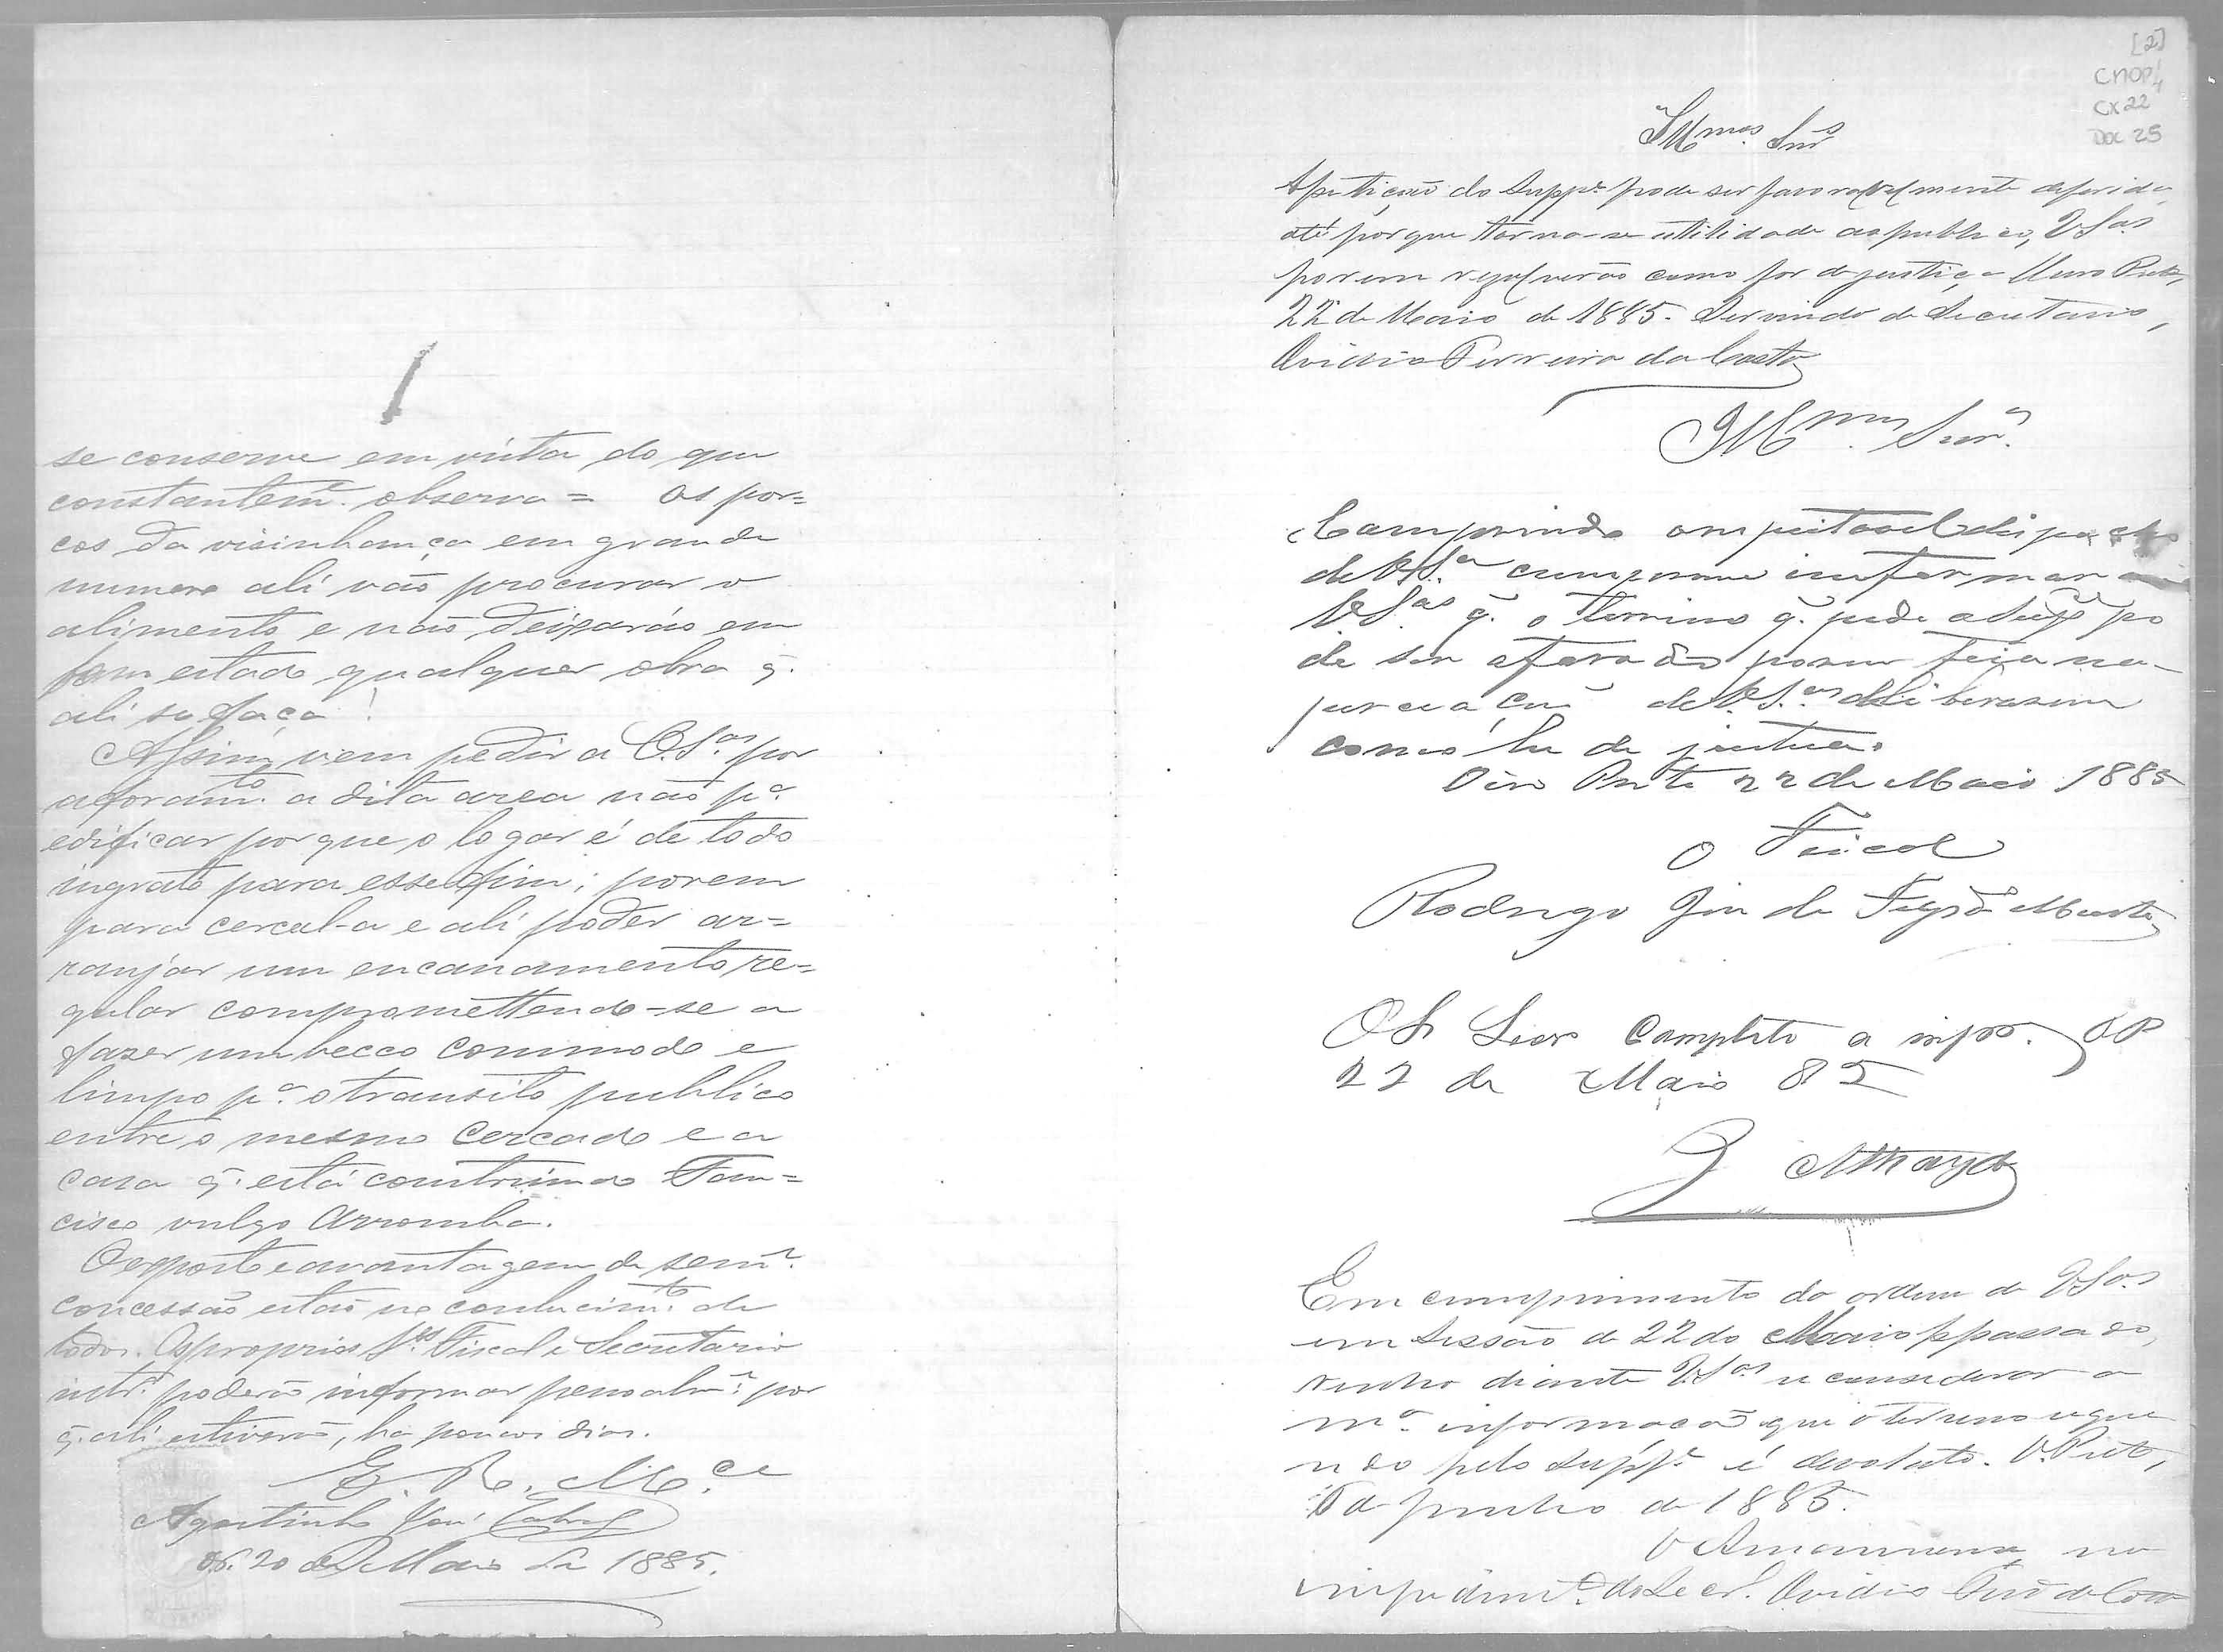 se conserve em vista do que
constantem.e observa = os por=
cos da visinhança em grande
numero ali vão procurar o
alimento e não deixarão em
bom estado qualquer obra q.
ali se faça!
Assim vem pedir a V.S.as por
aforam.to a dita area não p.a
edificar porque o logar é de todo
ingrato para esse fim; porem
para cercal-a e ali poder ar=
ranjar um encanamento re=
gular compromettendo-se a
fazer um becco commodo e
limpo p.a o transito publico
entre o mesmo cercado e a
casa q. está construindo Fran=
cisco vulgo Arromba.
O exposto e a vantagem de sem.e
concessão estão no conhecim.to de
todos. Os proprios S.res Fiscal e Secretario
poderão informar pessoalm.e por
q. ali estiverão, ha poucos dias.
E. R. M.ce
Agostinho José Cabral
20 de Maio de 1885.
[2]
CMOP/
CX 22
Doc 25
Ill.mos Snr.s
A petição do Supp.e pode ser favoravelmente deferida,
até porque torna-se utilidade ao publico, V.S.as
porem resolverão como for de justiça. Ouro Preto,
22 de Maio de 1885. Servindo de Secretario,
Ovidio Ferreira da Costa
Ill.mos Snr.s
Comprindo o respeitavel despacho
de V.S.as cumpre-me informar a
V.S.as q. o terreno q. pede o Supp.e po
de ser aforado porem
de V.S.as deliberarem
como for de justiça.
Ouro Preto 22 de Maio 1885
O Fiscal
Rodrigo José de Figrdo Murta
O Sr Secr complete a infor. OP
22 de Maio 85
Athayde
Em cumprimento da ordem de V.S.as
em Sessão de 22 de Maio p.passado,
venho diante V.S.as reconsiderar a
m.a informação que o terreno reque
rido pelo Supp.e é devoluto. O. Preto,
de Junho de 1885.
O Amanuense no
impedim.to do Secr. Ovidio Ferr.a da Costa